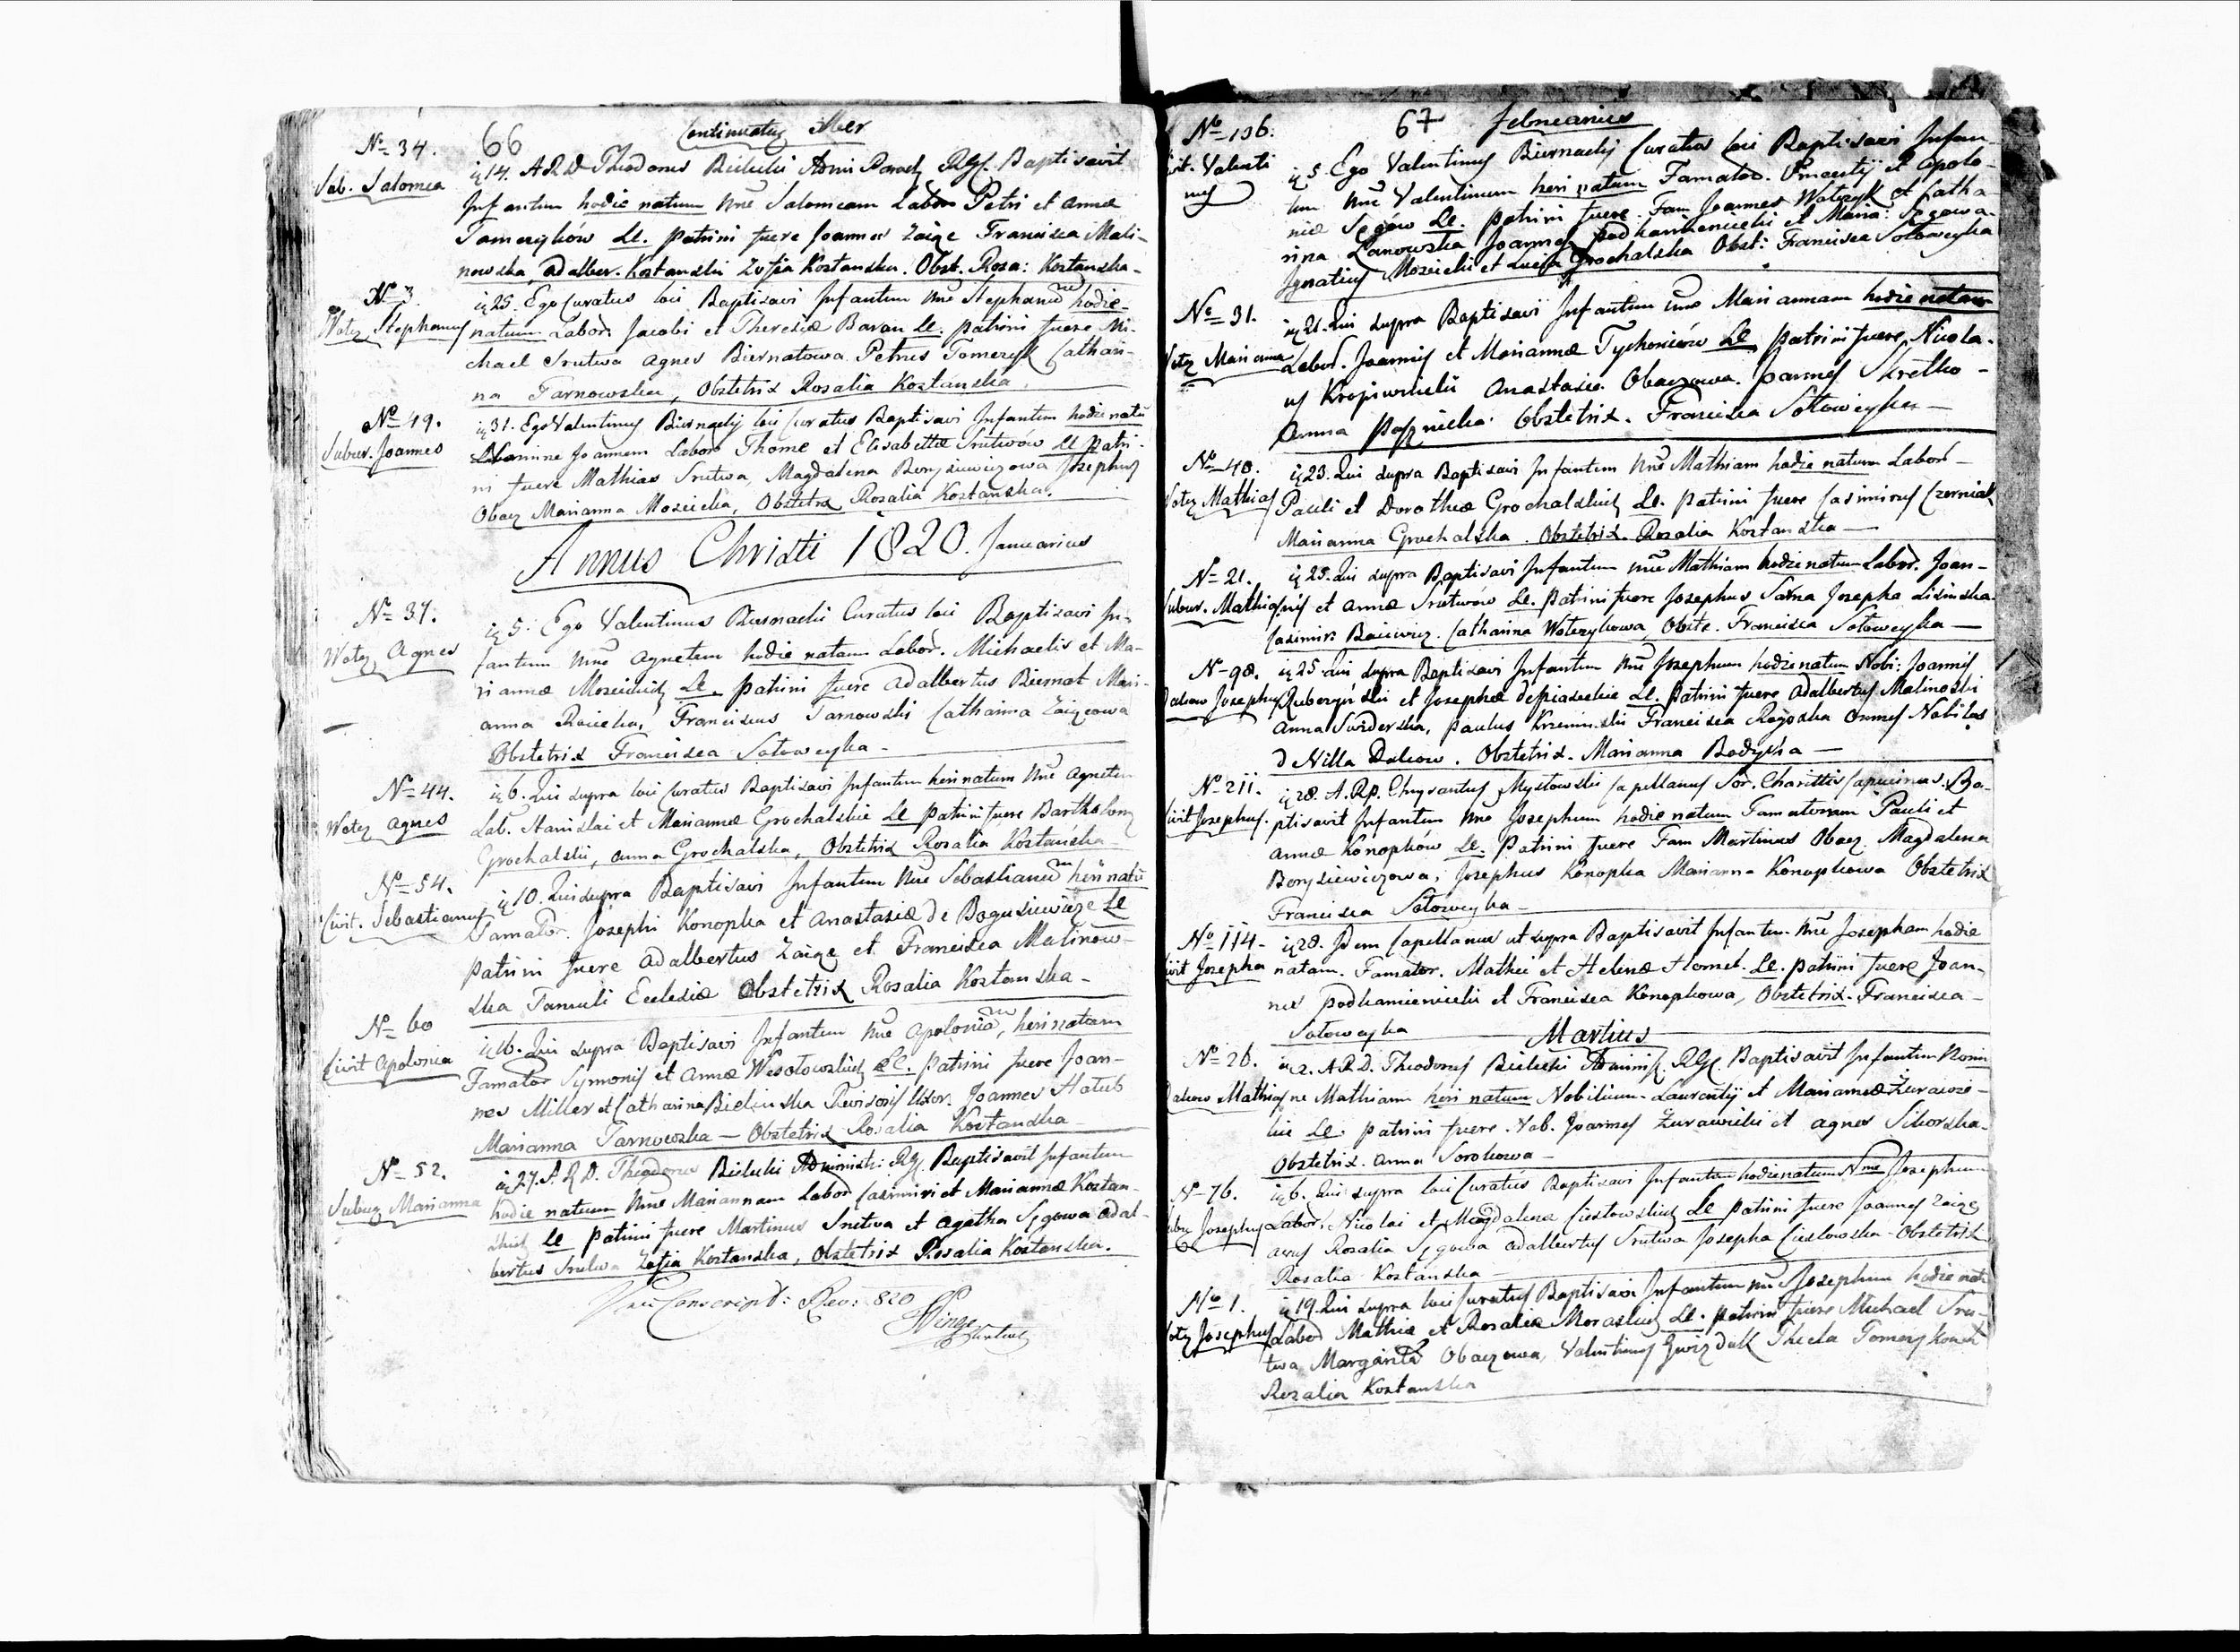 66 Continuatus Xber
No 34.
Sub. Salomea
14. A R D Theodorus Bielecki Baptisavit
Infantem hodie natum Nne Salomeam Labor Petri et Annæ
Tomczyków LC. Patrini fuere Joannes Zaiąc Francisca Mali-
nowska, Adalber. Kostanski Zofia Kostanska. Obst. Rosa: Kostanska
No 3.
Woły Stephanus
25. Ego Curatus loci Baptisavi Infantem Nne Stephanum hodie
natum Labor. Jacobi et Theresiæ Baran LC. Patrini fuere Mi-
chael Srutwa Agnes Biernatowa Petrus Tomczyk Cathari-
na Tarnowska, Obstetrix Rosalia Kostanska
No 49.
Subur. Joannes
31. Ego Valentinus Biernacki loci Curatus Baptisavi Infantem hodie natu
nomine Joannem Labor Thome et Elisabettæ Srutwow LC Patri-
ni fuere Mathias Srutwa, Magdalena Borysiewiczowa Josephus
Obacz Marianna Mosicka, Obstetrix Rosalia Kostanska.
Annus Christi 1820. Januarius
No 37.
Woły Agnes
5. Ego Valentinus Biernacki Curatus loci Baptisavi In-
fantem Nne Agnetem hodie natam Labor. Michaelis et Ma-
riannæ LC Patrini fuere Adalbertus Biernat Mari-
anna Franciscus Tarnowski Catharina Zaięcowa
Obstetrix Francisca Sołowczyka
No 44.
Woły Agnes
6. Qui supra loci Curatus Baptisavi Infantem heri natum Nne Agnetem
Lab. Stanislai et Mariannæ Grochalskie LC Patrini fuere Bartholom
Grochalski, Anna Grochalska, Obstetrix Rosalia Kostańska
No 54.
Civit. Sebastianus
10. Qui supra Baptisavi Infantem Nne Sebastianum heri natu
Famator. Josephi Konopka et Anastasiæ de LC
Patrini fuere Adalbertus Zaiąc et Francisca Malinow-
ska Famuli Ecclesiæ Obstetrix Rosalia Kostanska
No 60
Civit Apolonia
16. Qui supra Baptisavi Infantem Nne Apoloniam, heri natam
Famator Symonis et Annæ LC. Patrini fuere Joan-
nes Miller et Catharina Bielinska Revisoris Uxor. Joannes Hołub
Marianna Tarnowska — Obstetrix Rosalia Kostanska
No 52.
Subur Marianna
27. A R D. Theodorus Bielecki Administ: Baptisavit Infantem
hodie natum Nne Mariannam Labor Casimiri et Mariannæ Kostan-
skich LC Patrini fuere Martinus Srutwa et Agatha Sęgowa Adal-
bertus Srutwa Zofia Kostanska, Obstetrix Rosalia Kostanska.
820
67 Februarius
No 106.
Civit. Valenti
nus
5. Ego Valentinus Biernacki Curatus loci Baptisavi Infan-
tem Nne Valentinum heri natum Famator. Vincentij et Apolo-
niæ Sęgów LC. Patrini fuere Fam Joannes Wołczyk et Catha
rina Łanowska Joannes Podkamienicki et Maria: Sęgowa.
Ignatius Mosicki et Grochalska Obst: Francisca Sołowczyka
No 31.
Woły Marianna
21. Qui supra Baptisavi Infantem Nne Mariannam hodie natam
Labor. Joannis et Mariannæ LC Patrini fuere Nicola-
us Kropiwnicki Anastasia Obaczowa. Joannes
Anna Obstetrix. Francisca Sołowczyka
No 40.
Woły Mathias
23. Qui supra Baptisavi Infantem Nne Mathiam hodie natum Labor
Pauli et Dorotheæ Grochalskich LC. Patrini fuere Casimirus Czerniak
Marianna Grochalska. Obstetrix. Rosalia Kostanska
No 21.
Subur. Mathias
25. Qui supra Baptisavi Infantem Nne Mathiam hodie natum Labor. Joan-
nis et Annæ Srutwów LC. Patrini fuere Josephus Sarna Josepha Lisinska.
Casimir: Catharina Wołczykowa, Obste. Francisca Sołowczyka
No 98.
Daleow Josephus
25 Qui supra Baptisavi Infantem Nne Josephum hodie natum Nobi: Joannis
et Josephæ LC. Patrini fuere Adalbertus Malinoski
Anna Swiderska, Paulus Francisca Rogoska omnes Nobiles
d Villa Obstetrix. Marianna
No 211.
Civit Josephus.
28. A. Rp. Chrysantus Mysłowski Capellanus Sor. Charitis Capucinus. Ba-
ptisavit Infantem Nne Josephum hodie natum Famatorum Pauli et
Annæ Konopków LC. Patrini fuere Fam Martinus Obacz Magdalena
Borysiewiczowa, Josephus Konopka Marianna Konopkowa Obstetrix
Francisca Sołowczyka
No 114
Civit Josepha
28. Idem Capellanus ut supra Baptisavit Infantem Nne Josepham hodie
natam. Famator. Mathei et Helenæ LC. Patrini fuere Joan-
nes Podkamienicki et Francisca Konopkowa, Obstetrix. Francisca
Sołowczyka
Martius
No 26.
Mathias
2. A R D. Theodorus Bielecki Adminis. Baptisavit Infantem Nomi
ne Mathiam heri natum Nobilium Laurentij et Mariannæ Zurawic-
kie LC. Patrini fuere. Nob. Joannes Zurawicki et Agnes Sikorska.
Obstetrix. Anna Sorokowa
No 76.
Subu Josephus
6. Qui supra loci Curatus Baptisavi Infantem hodie natum Nne Josephum
Labor. Nicolai et Magdalenæ Ciesłowskich LC Patrini fuere Joannes Zaięc
Rosalia Sęgowa Adalbertus Srutwa Josepha Cieslowska Obstetrix
Rosalia Kostanska
No 1.
Woły Josephus
19. Qui supra loci Curatus Baptisavi Infantem Nne Josephum hodie nat
Labor Mathiæ et Rosaliæ LC. Patrini fuere Michael Sru-
twa Margarita Obaczowa, Valentinus Gwizdak Thecla
Rozalia Kostanska